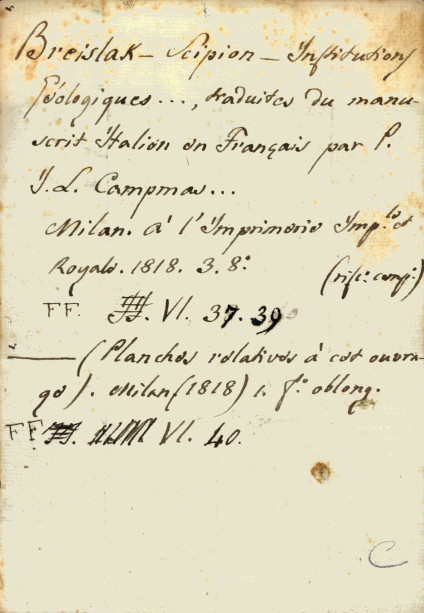 Breislak – Scipion – Institutions
Géologiques..., traduites du manu-
scrit Italien en Français par P.
J. L. Campmas...
Milan. à l'Imprimerie Imp.le et
Royale. 1818. 3. 8.°
FF. VI. 37.39
——— (Planches relatives à cet ouvra-
ge). Milan (1818) 1. f.° oblong.
FF VI. 40.
C